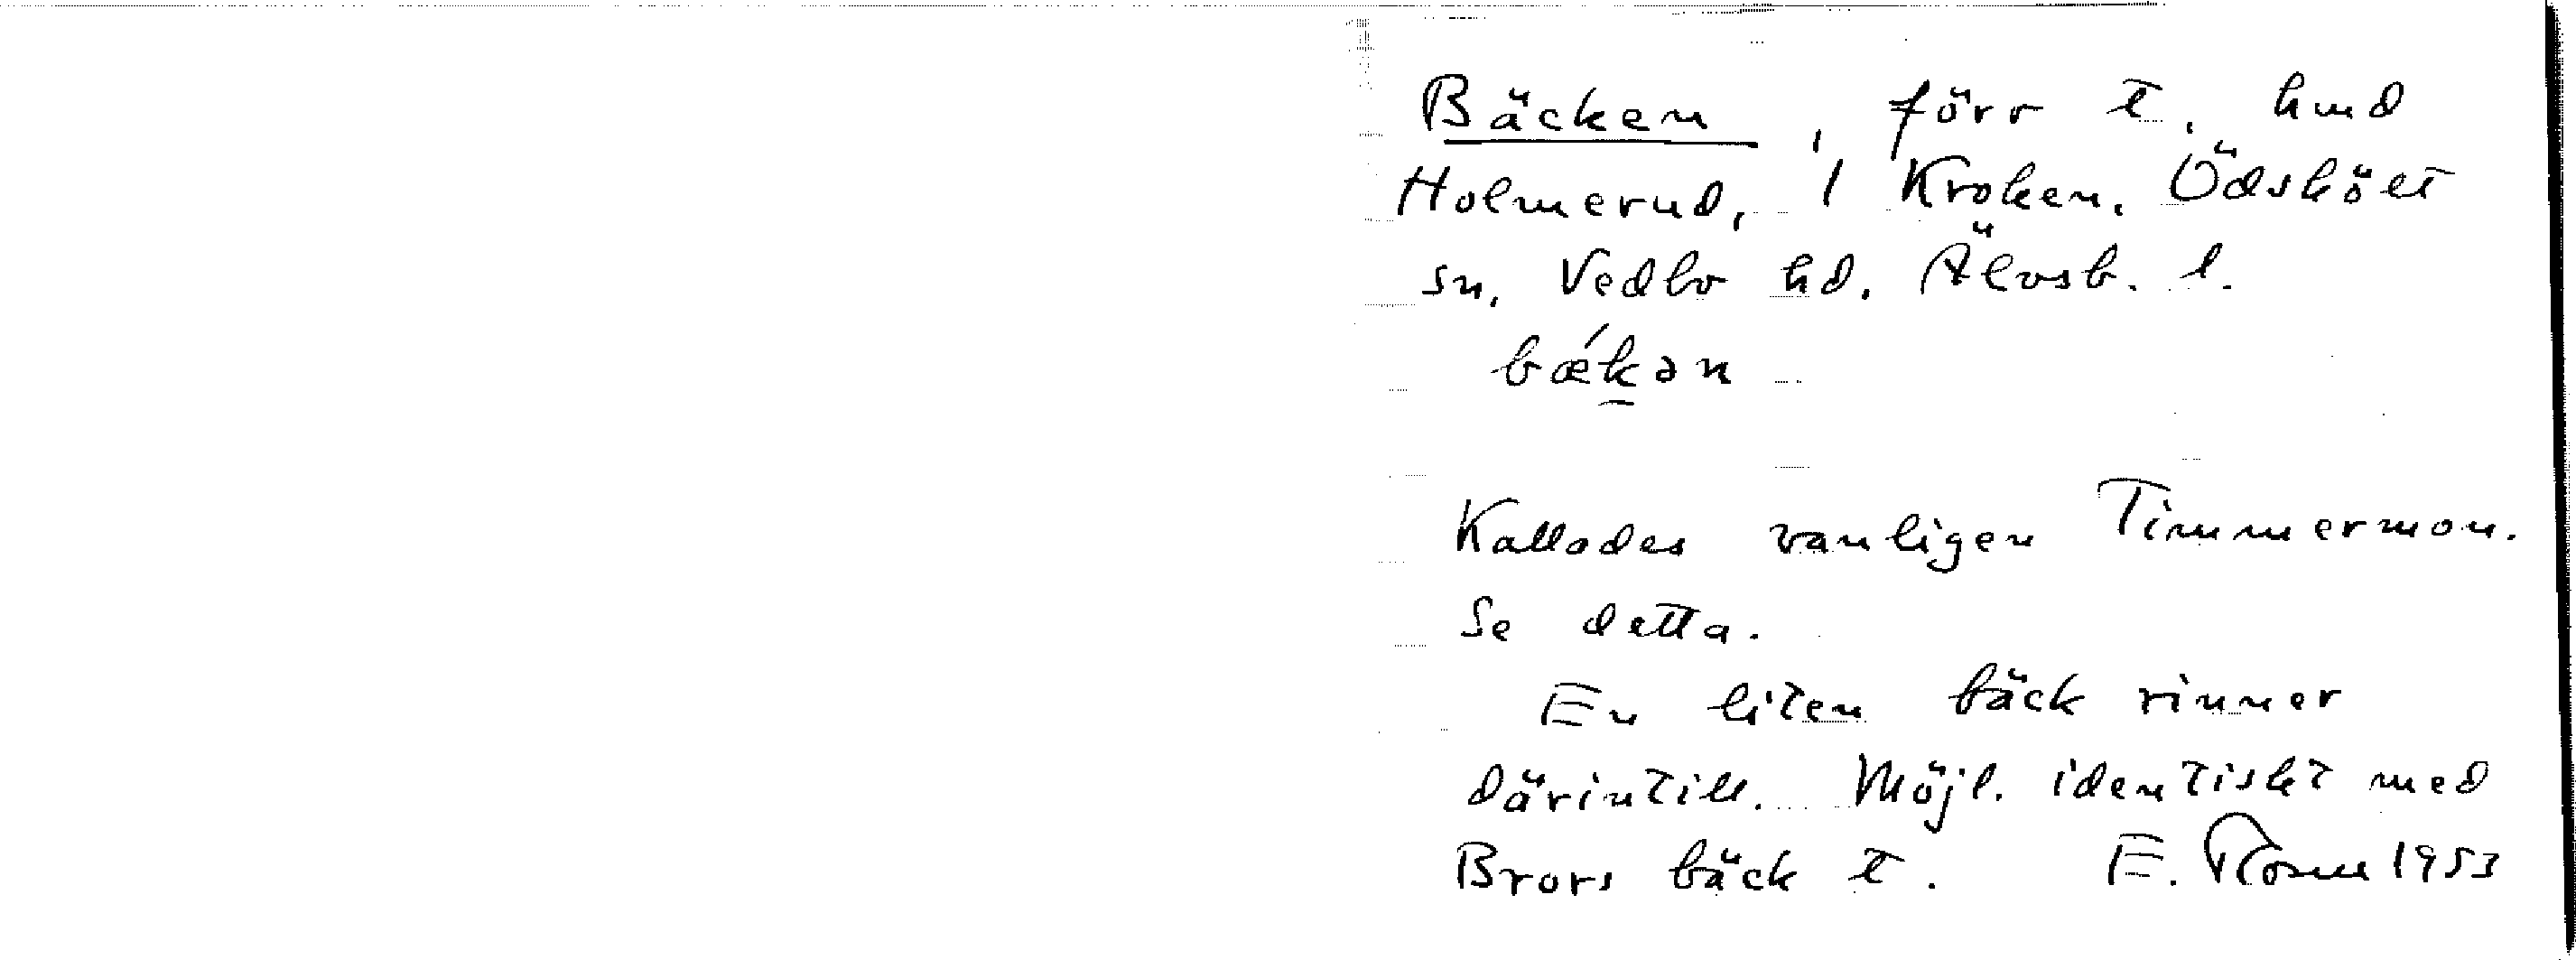 Bäcken, förr t. hmd
Holmerud, 1 Kroken. Ödskölt
sn. Vedbo hd. Älvsb. l.
bǽkən
Kallades vanligen Timmermon.
Se detta.
En liten bäck rinner
därintill. Möjl. identiskt med
Brors bäck t. E. 1953